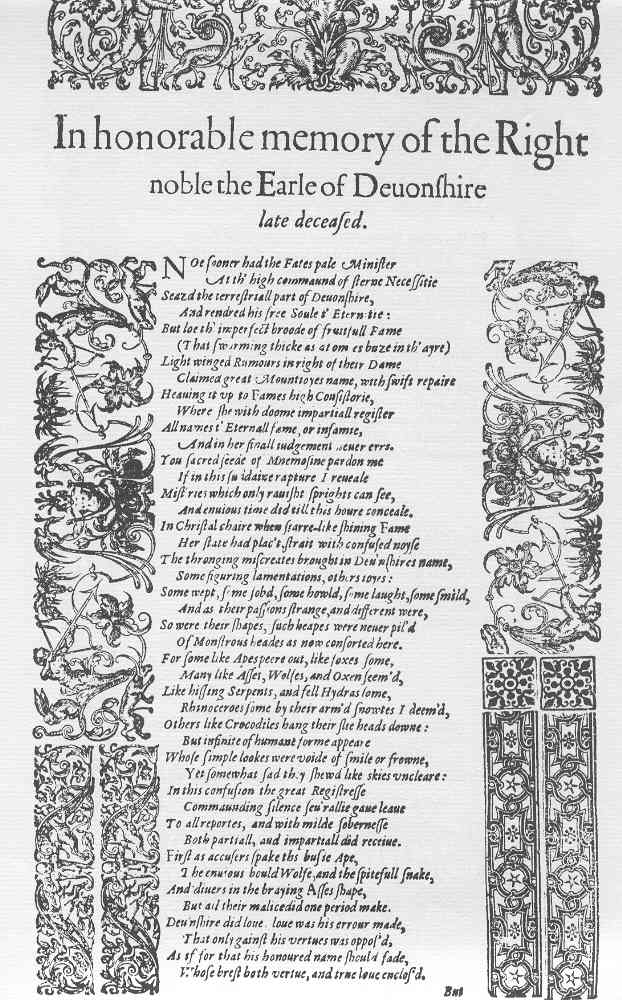 In honorable memory of the Right
noble the Earle of Deuonſhire
late deceaſed.
NOe ſooner had the Fates pale Miniſter
At th' high commaund of ſterne Neceſſitie
Seazd the terreſtriall part of Deuonſhire,
And rendred his free Soule t' Eternitie:
But loe th' imperfect broode of fruitfull Fame
(That ſwarming thicke as atomes buze in th' ayre)
Light winged Rumours in right of their Dame
Claimed great Mountioyes name, with ſwift repaire
Heauing it vp to Fames high Conſiſtorie,
Where ſhe with doome impartiall regiſter
All names t' Eternall fame, or infamie,
And in her finall iudgement neuer errs.
You ſacred ſeede of Mnemoſine pardon me
If in this ſuddaine rapture I reueale
Miſt'ries which only rauiſht ſprights can ſee,
And enuious time did till this houre conceale.
In Chriſtal chaire when ſtarre-like ſhining Fame
Her ſtate had plac't, ſtrait with confuſed noyſe
The thronging miſcreates brought in Deu'nſhires name,
Some figuring lamentations, others ioyes:
Some wept, ſome ſobd, ſome howld, ſome laught, ſome ſmild,
And as their paſſions ſtrange, and different were,
So were their ſhapes, ſuch heapes were neuer pil'd
Of Monſtrous heades as now conſorted here.
For ſome like Apes peere out, like foxes ſome,
Many like Aſſes, Wolfes, and Oxen ſeem'd,
Like hiſſing Serpents, and fell Hydras ſome,
Rhinoceroes ſome by their arm'd ſnowtes I deem'd,
Others like Crocodiles hang their ſlie heads downe:
But infinite of humane forme appeare
Whoſe ſimple lookes were voide of ſmile or frowne,
Yet ſomewhat ſad they ſhew'd like skies vncleare:
In this confuſion the great Regiſtreſſe
Commaunding ſilence ſeu'rallie gaue leaue
To all reportes, and with milde ſoberneſſe
Both partiall, and impartiall did receiue.
Firſt as accuſers ſpake the buſie Ape,
The enuious bould Wolfe, and the ſpitefull ſnake,
And diuers in the braying Aſſes ſhape,
But all their malice did one period make.
Deu'nſhire did loue. loue was his errour made,
That only gainſt his vertues was oppoſ'd,
As if for that his honoured name ſhould fade,
Whoſe breſt both vertue, and true loue encloſ'd.
But